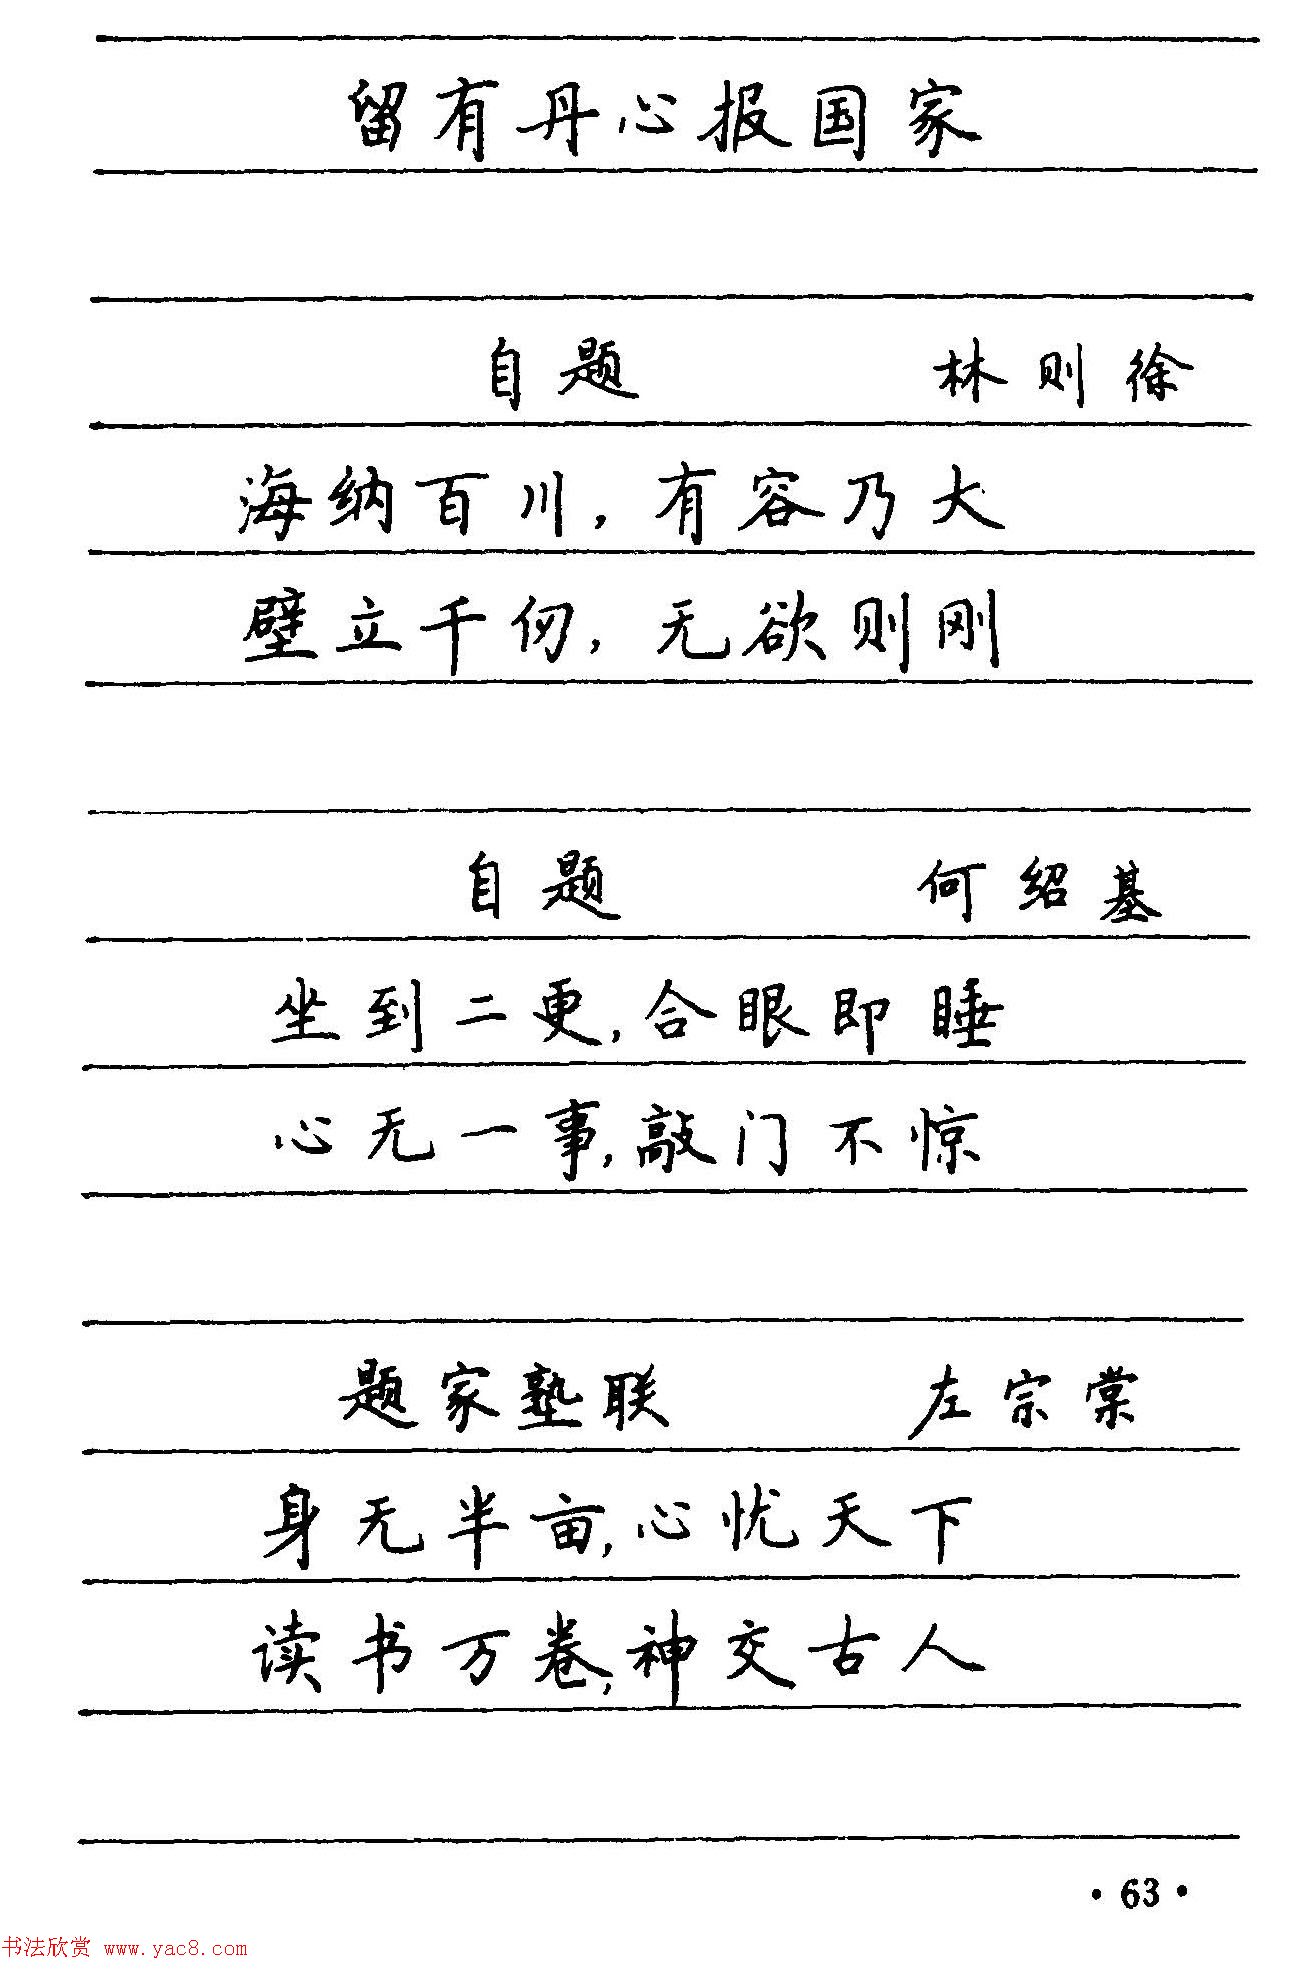 留有丹心报国家
自题 林则徐
海纳百川，有容乃大
壁立千仞，无欲则刚
自题 何绍基
坐到二更，合眼即睡
心无一事，敲门不惊
题家塾联 左宗棠
身无半亩，心忧天下
读书万卷，神交古人
·63·
书法欣赏 www.yac8.com